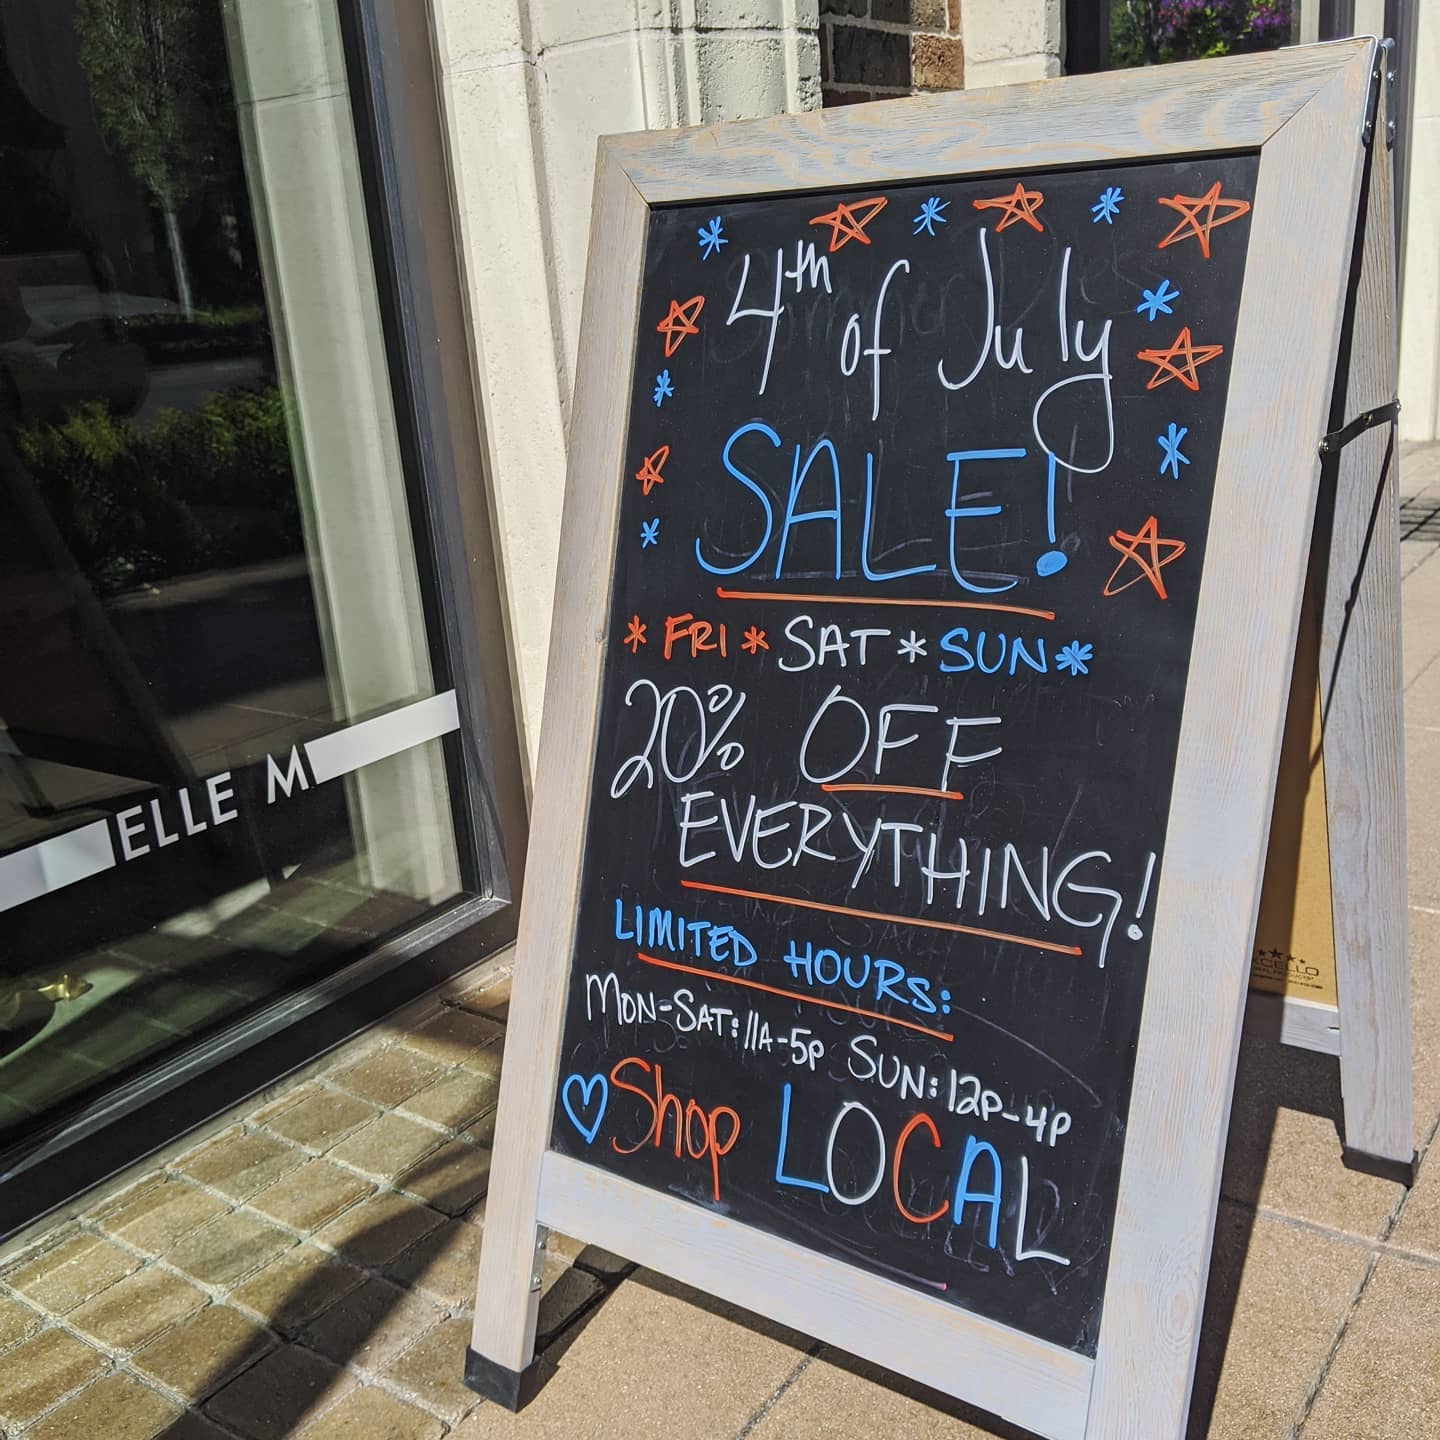 4th of July
SALE!
* FRI * SAT * SUN *
20% OFF
EVERYTHING!
LIMITED HOURS:
MON-SAT: 11A-5P SUN: 12P-4P
♡ Shop LOCAL
ELLE M